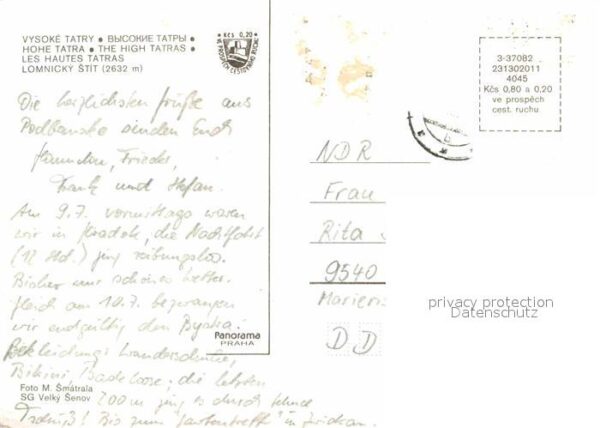 VYSOKÉ TATRY • ВЫСОКИЕ ТАТРЫ •
HOHE TATRA • THE HIGH TATRAS •
LES HAUTES TATRAS
LOMNICKÝ ŠTÍT (2632 m)
Kčs 0,20
VE PROSPĚCH CESTOVNÍHO RUCHU
3-37082
231302011
4045
Kčs 0,80 a 0,20
ve prospěch
cest. ruchu
Die herzlichsten Grüße aus
Podbanske senden Euch
Frank und Stefan.
Am 9.7. vormittags waren
wir in Hradok, die Nachtfahrt
(12 Std.) ging reibungslos.
Bisher nur schönes Wetter.
Gleich am 10.7. bezwangen
wir endgültig den Bystra.
Bekleidung: Wanderschuhe,
Bikini, Badehose, die letzten
200 m ging es durch Schnee
Tschüß! Bis zum in Zwickau.
NDR
Frau
Rita
9540
DD
Panorama
PRAHA
Foto M. Šmátrala
SG Velký Šenov
privacy protection
Datenschutz